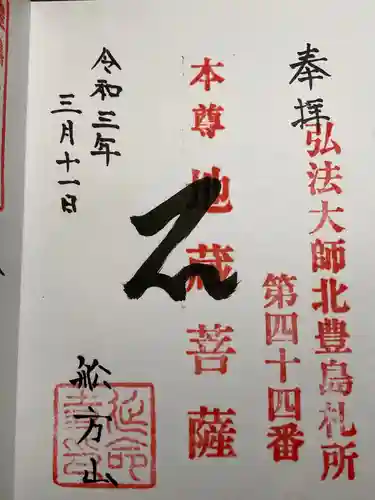 奉拝
弘法大師北豊島札所
第四十四番
本尊地蔵菩薩
令和三年
三月十一日
舩方山
延命寺印